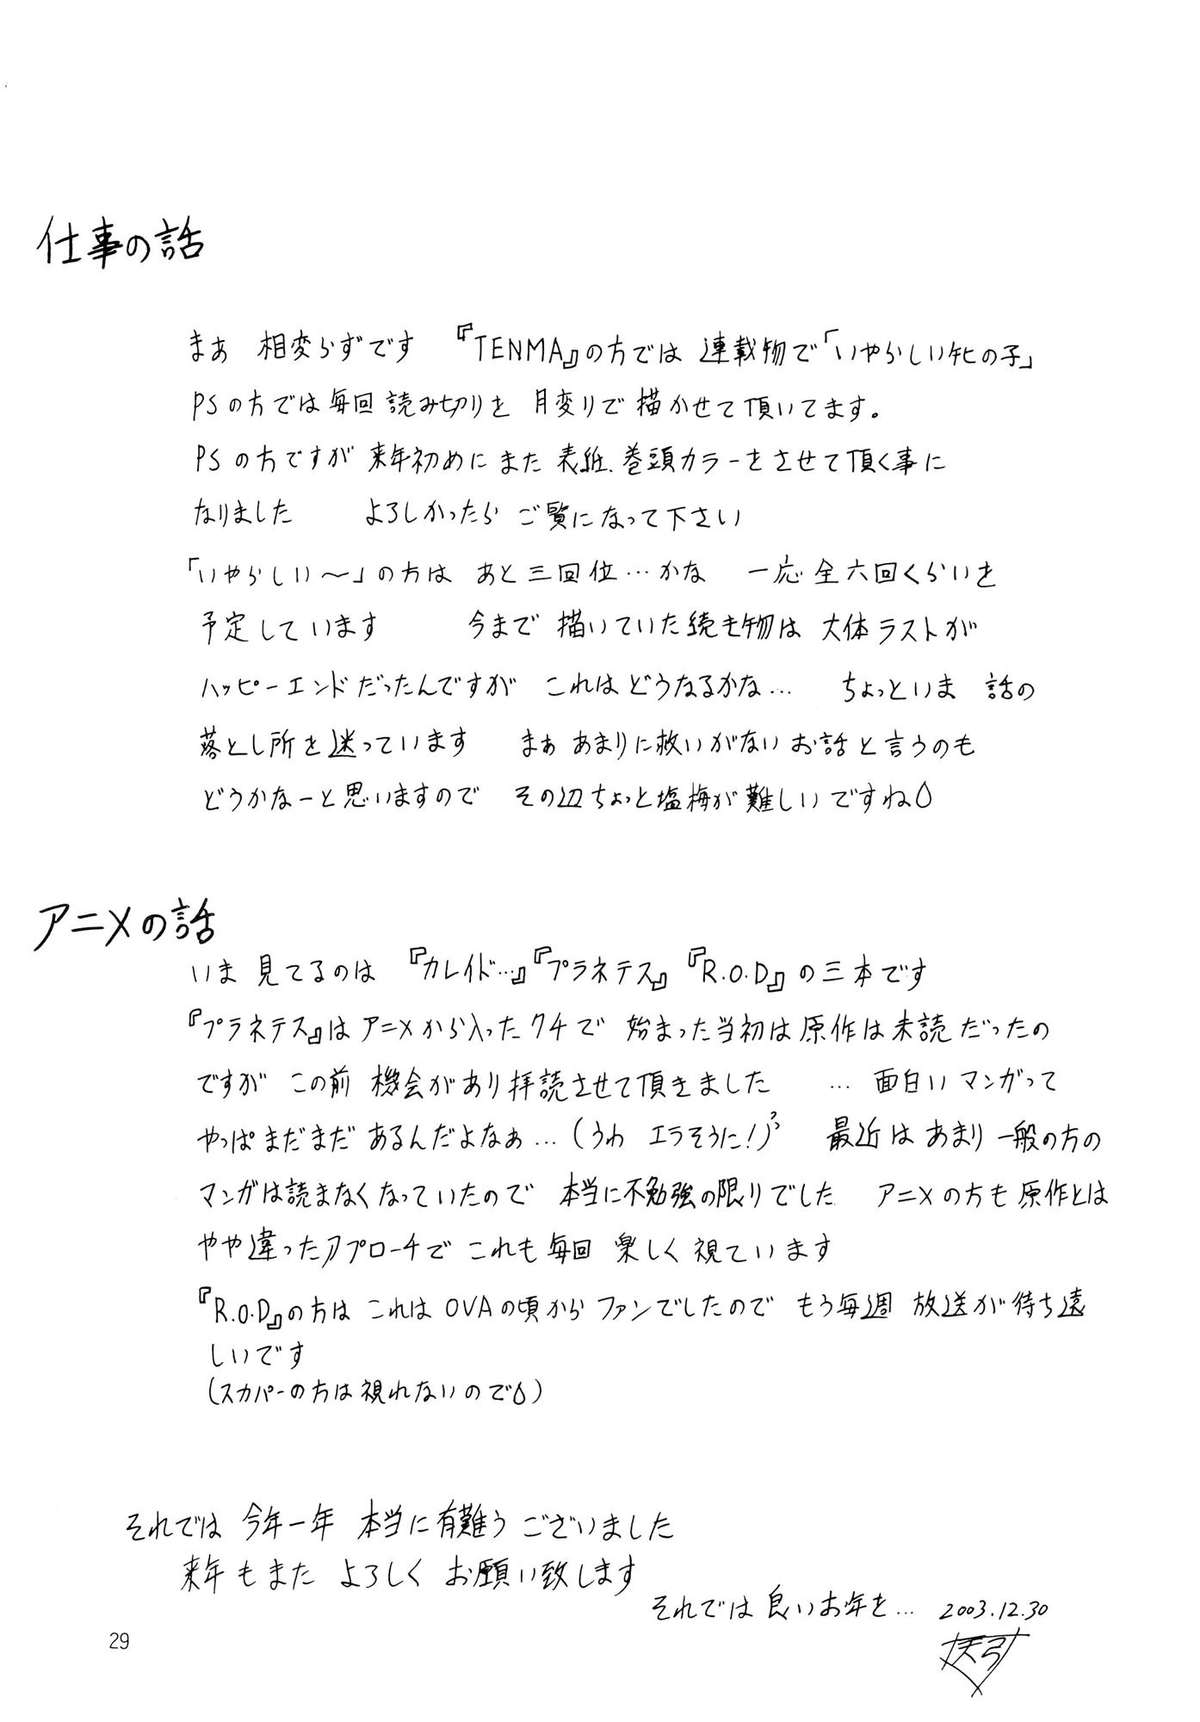 仕事の話
まあ 相変らずです 『TENMA』の方では 連載物で「いやらしい牝の子」
PSの方では毎回 読み切りを 月変りで描かせて頂いてます。
PSの方ですが 来年初めにまた 表紙.巻頭カラーをさせて頂く事に
なりました よろしかったら ご覧になって下さい
「いやらしい〜」の方は あと三回位…かな 一応全六回くらいを
予定しています 今まで 描いていた続き物は 大体ラストが
ハッピーエンドだったんですが これはどうなるかな… ちょっといま 話の
落とし所を迷っています まぁ あまりに救いがないお話と言うのも
どうかなーと思いますので その辺ちょっと塩梅が難しいですね
アニメの話
いま 見てるのは 『カレイド…』『プラネテス』『R.O.D』の三本です
『プラネテス』はアニメから入ったクチで 始まった当初は原作は未読だったの
ですが この前 機会があり拝読させて頂きました … 面白いマンガって
やっぱまだまだ あるんだよなぁ…(うわ エラそうに!) 最近はあまり一般の方の
マンガは読まなくなっていたので 本当に不勉強の限りでした アニメの方も原作とは
やや違ったアプローチで これも毎回 楽しく視ています
『R.O.D』の方は これはOVAの頃からファンでしたので もう毎週 放送が待ち遠
しいです
(スカパーの方は視れないので)
それでは 今年一年 本当に有難う ございました
来年もまた よろしく お願い致します
それでは良いお年を… 2003.12.30
29